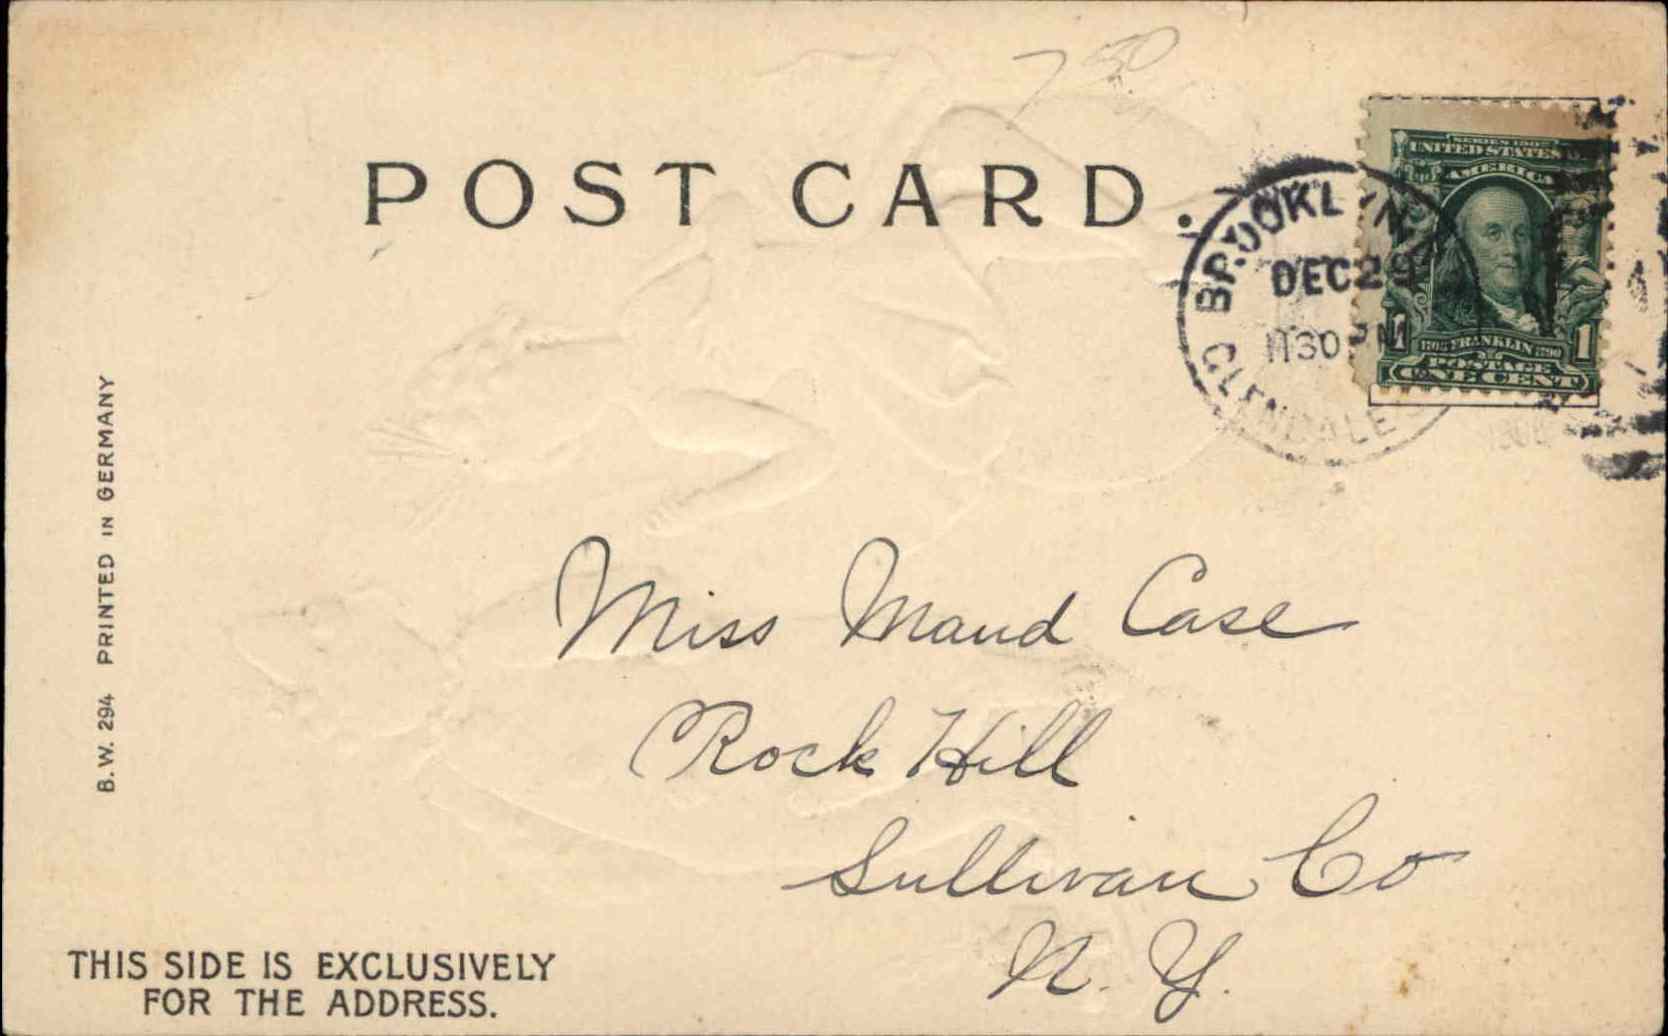 7 50
POST CARD.
SERIES 1902
UNITED STATES OF
AMERICA
1 1
1706 FRANKLIN 1790
POSTAGE
ONE CENT
BROOKLYN
DEC 29
1130 PM
GLENDALE
Miss Maud Case
Rock Hill
Sullivan Co
N. Y.
B.W. 294 PRINTED IN GERMANY
THIS SIDE IS EXCLUSIVELY
FOR THE ADDRESS.